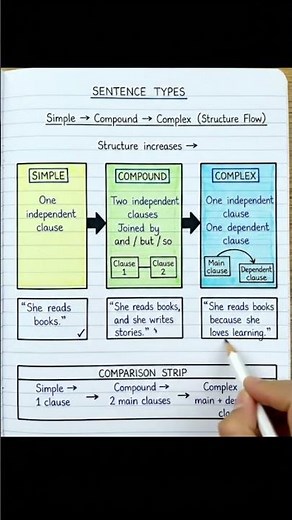 SENTENCE TYPES
Simple → Compound → Complex (Structure Flow)
Structure increases →
SIMPLE
One
independent
clause
COMPOUND
Two independent
clauses
Joined by
and / but / so
Clause
1
Clause
2
COMPLEX
One independent
clause
One dependent
clause
Main
clause
Dependent
clause
"She reads
books."
✓
"She reads books,
and she writes
stories."
"She reads books
because she
loves learning."
COMPARISON STRIP
Simple →
1 clause
→
Compound →
2 main clauses
→
Complex
main +